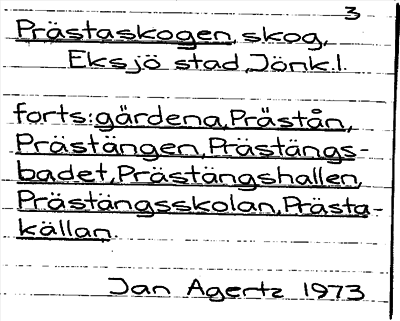 3
Prästaskogen, skog,
Eksjö stad, Jönk.l.
forts:gärdena, Prästån,
Prästängen, Prästängs-
badet, Prästängshallen,
Prästängsskolan, Prästa-
källan.
Jan Agertz 1973